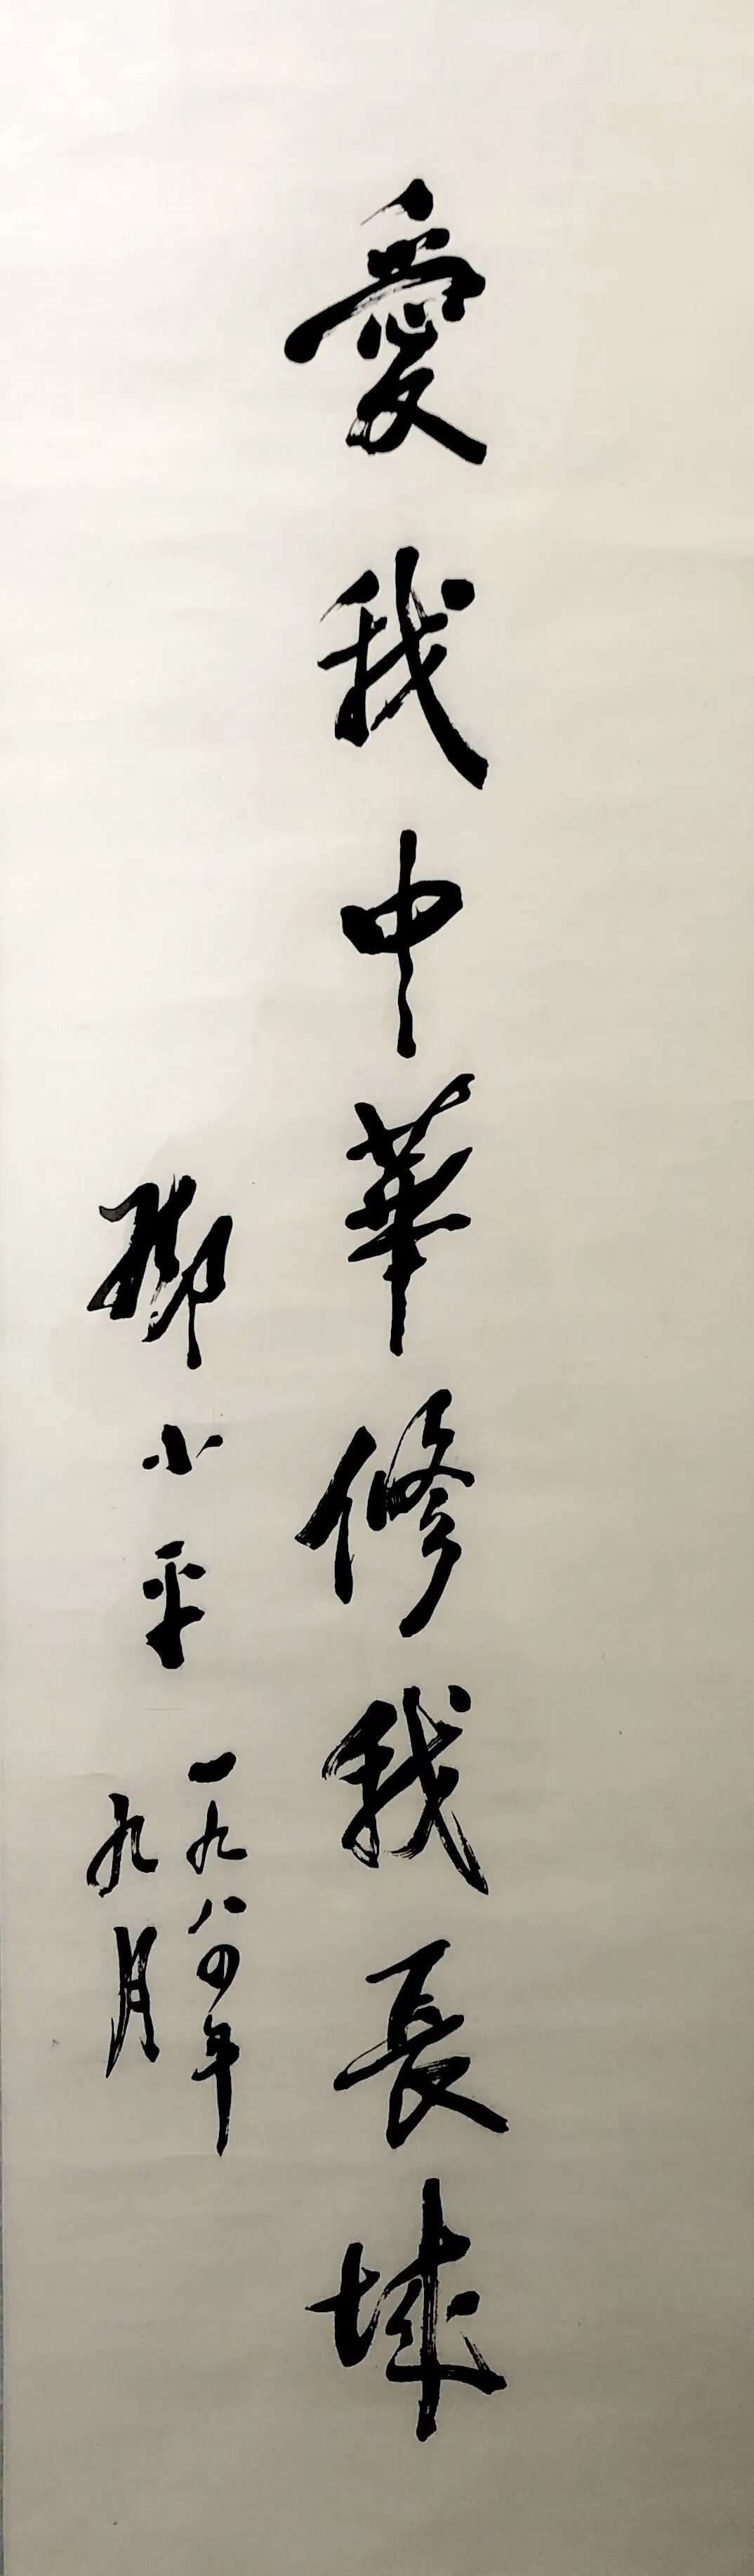 愛我中華修我長城
鄧小平
一九八四年
九月